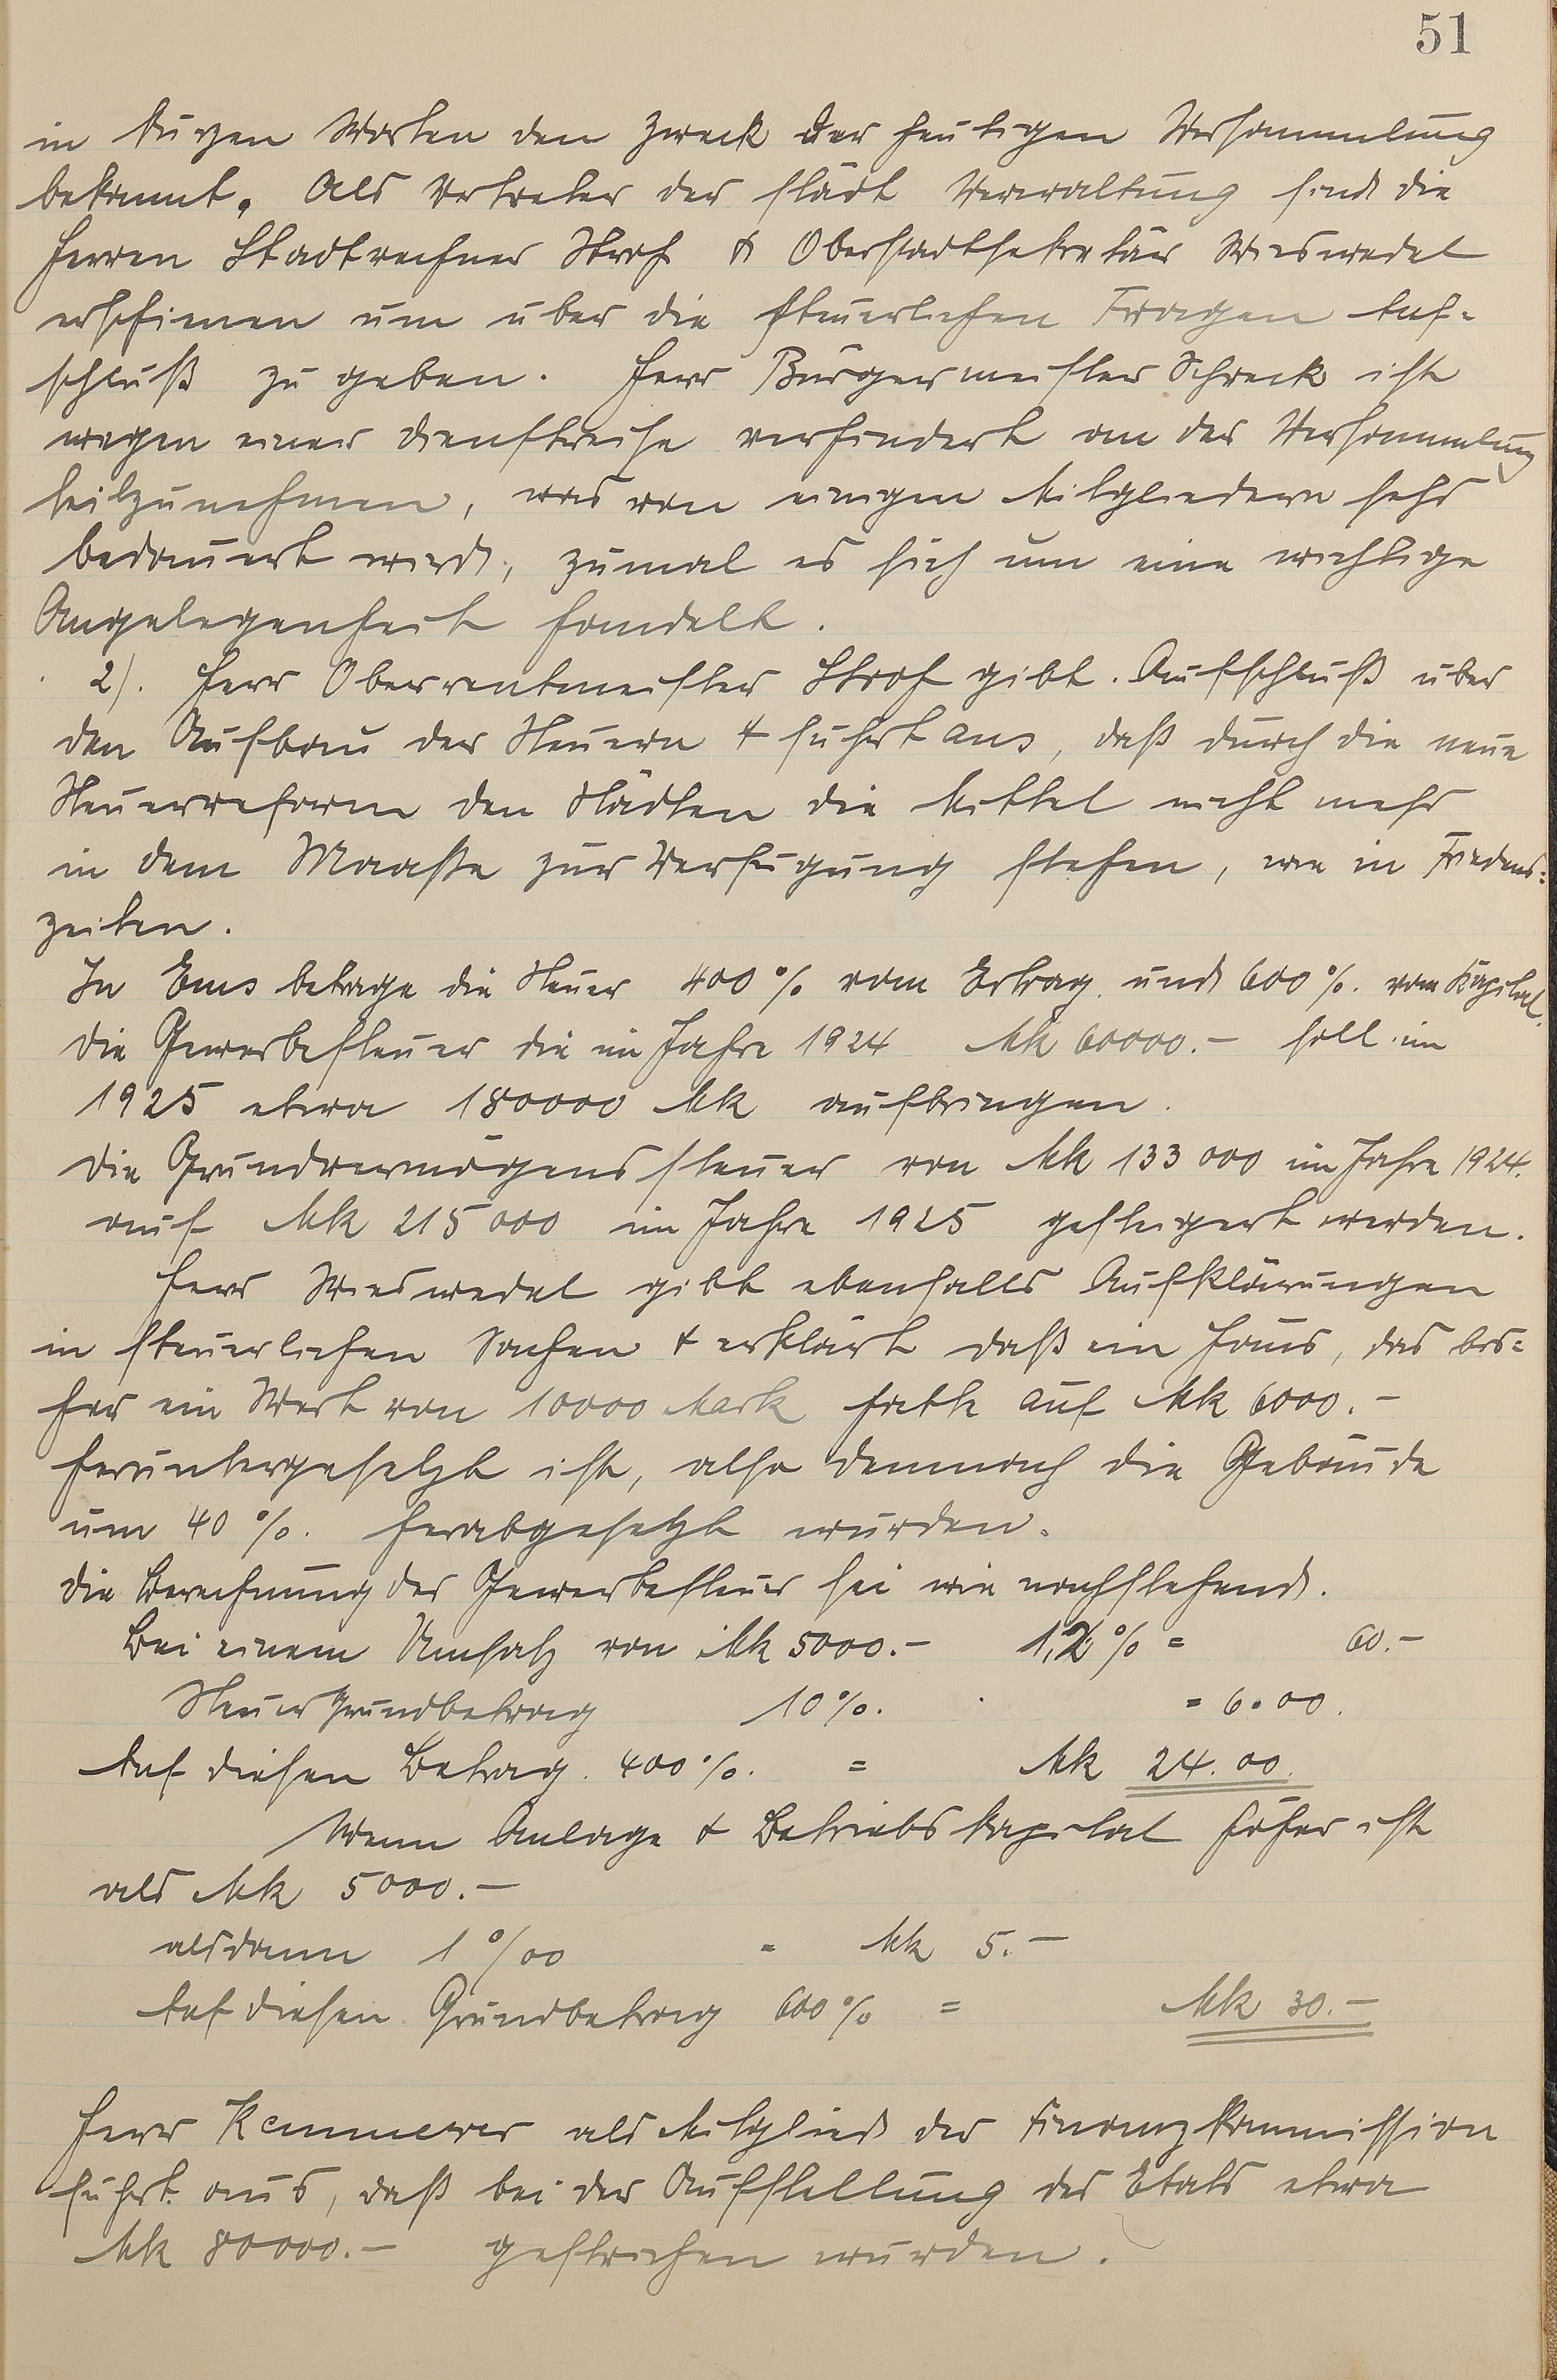 51
in kurzen Worten den Zweck der heutigen Versammlung
bekannt. Als Vertreter der städt Verwaltung sind die
Herren Stadtrechner Stroh & Oberstadtsekretär Wieswedel
erschienen um uber die steuerlichen Fragen Auf-
schluß zu geben. Herr Bürgermeister Schreck ist
wegen einer Dienstreise verhindert an der Versammlung
teilzunehmen, was von einigen Mitgliedern sehr
bedauert wird, zumal es sich um eine wichtige
Angelegenheit handelt.
2). Herr Oberrentmeister Stroh gibt Aufschluß uber
den Aufbau der Steuern & fuhrt aus, daß durch die neue
Steuerreform den Städten die Mittel nicht mehr
in dem Maaße zur Verfugung stehen, wie in Friedens-
zeiten.
In Ems betrage die Steuer 400 % vom Ertrag und 600 %. vom Kapital.
Die Gewerbesteuer die im Jahre 1924 Mk 60000.- soll im
1925 etwa 180000 Mk aufbringen.
Die Grundvermögenssteuer von Mk 133 000 im Jahre 1924.
auf Mk 215 000 im Jahre 1925 gesteigert werden.
Herr Wieswedel gibt ebenfalls Aufklärungen
in steuerlichen Sachen & erklärt daß ein Haus, das bis-
her ein Wert von 10000 Mark hatte auf Mk 6000.-
heruntergesetzt ist, also demnach die Gebäude
um 40 %. herabgesetzt wurden.
Die Berechnung der Gewerbesteuer sei wie nachstehend.
Bei einem Umsatz von Mk 5000.- 1,2 % = 60.-
Steuer Grundbetrag 10 %. = 6.00.
Auf diesen Betrag 400 %. = Mk 24.00.
Wenn Anlage & Betriebskapital höher ist
als Mk 5000.-
alsdann 1 ‰ = Mk 5.-
Auf diesen Grundbetrag 600 % = Mk 30.-
Herr Kemmerer als Mitglied der Finanzkommission
fuhrt aus, daß bei der Aufstellung des Etats etwa
Mk 80000.- gestrichen wurden.